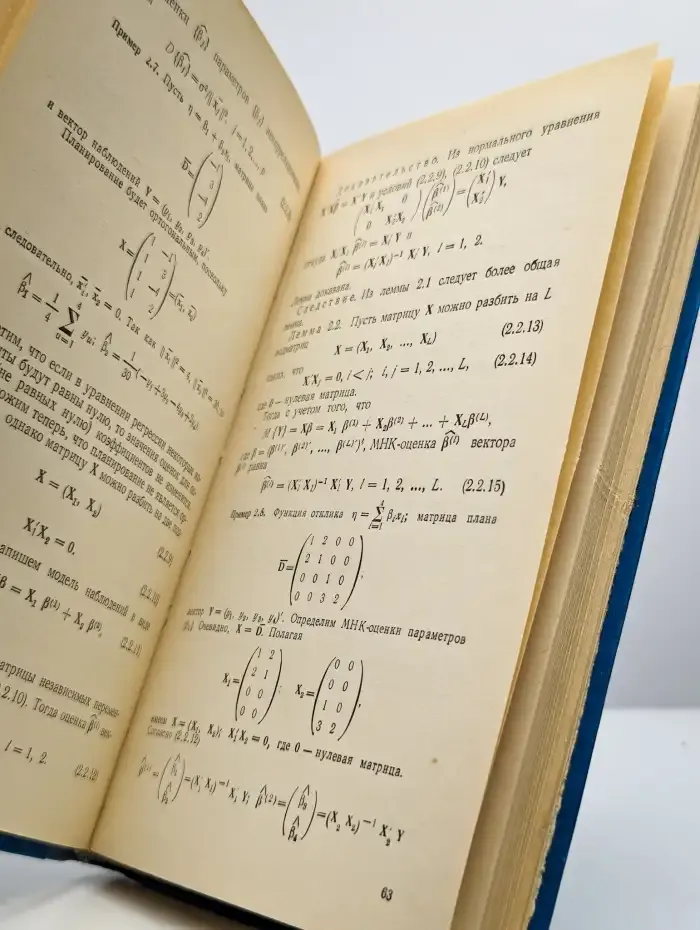 параметров {βⱼ}
D{β̂ⱼ} = σ²/‖x̄ⱼ‖², j = 1, 2, ..., p
Пример 2.7. Пусть η = β₁ + β₂x₂, матрица плана
D̄ = (
−1
3
−4
2
)
и вектор наблюдений Y = (y₁, y₂, y₃, y₄)′
Планирование будет ортогональным, поскольку
X = (
1 −1
1 3
1 −4
1 2
) = (x̄₁, x̄₂)
следовательно, x̄₁′ x̄₂ = 0. Так как ‖x̄₁‖² = 4, ‖x̄₂‖² = 30, то
β̂₁ = 1/4 Σ yᵤ; β̂₂ = 1/30 (−y₁ + 3y₂ − 4y₃ + 2y₄)
что если в уравнении регрессии некоторые
будут равны нулю, то значения оценок для
не равных нулю) коэффициентов не изменятся.
теперь, что планирование не является
однако матрицу X можно разбить на две
X = (X₁, X₂) (2.2.9)
X₁′X₂ = 0. (2.2.10)
запишем модель наблюдений в виде
β = X₁ β⁽¹⁾ + X₂ β⁽²⁾, (2.2.11)
матрицы независимых
(2.2.10). Тогда оценка β̂⁽ˡ⁾
l = 1, 2. (2.2.12)
Доказательство. Из нормального уравнения
X′Xβ̂ = X′Y и условий (2.2.9), (2.2.10) следует
(
X₁′X₁ 0
0 X₂′X₂
) (
β̂⁽¹⁾
β̂⁽²⁾
) = (
X₁′
X₂′
) Y,
откуда Xₗ′Xₗ β̂⁽ˡ⁾ = Xₗ′Y и
β̂⁽ˡ⁾ = (Xₗ′Xₗ)⁻¹ Xₗ′Y, l = 1, 2.
Лемма доказана.
Следствие. Из леммы 2.1 следует более общая
лемма.
Лемма 2.2. Пусть матрицу X можно разбить на L
подматриц
X = (X₁, X₂, ..., X_L) (2.2.13)
таких, что
Xᵢ′Xⱼ = 0, i < j; i, j = 1, 2, ..., L, (2.2.14)
где 0 — нулевая матрица.
Тогда с учетом того, что
M{Y} = Xβ = X₁ β⁽¹⁾ + X₂β⁽²⁾ + ... + X_Lβ⁽ᴸ⁾,
где β = (β⁽¹⁾′, β⁽²⁾′, ..., β⁽ᴸ⁾′)′, МНК-оценка β̂⁽ˡ⁾ вектора
β⁽ˡ⁾ равна
β̂⁽ˡ⁾ = (Xₗ′Xₗ)⁻¹ Xₗ′ Y, l = 1, 2, ..., L. (2.2.15)
Пример 2.8. Функция отклика η = Σ βᵢxᵢ; матрица плана
D̄ = (
1 2 0 0
2 1 0 0
0 0 1 0
0 0 3 2
),
вектор Y = (y₁, y₂, y₃, y₄)′. Определим МНК-оценки параметров
{βᵢ} Очевидно, X = D̄. Полагая
X₁ = (
1 2
2 1
0 0
0 0
); X₂ = (
0 0
0 0
1 0
3 2
),
имеем X = (X₁, X₂); X₁′X₂ = 0, где 0 — нулевая матрица.
Согласно (2.2.12)
β̂⁽¹⁾ = (
β̂₁
β̂₂
) = (X₁′ X₁)⁻¹ X₁′ Y; β̂⁽²⁾ = (
β̂₃
β̂₄
) = (X₂′ X₂)⁻¹ X₂′ Y
63